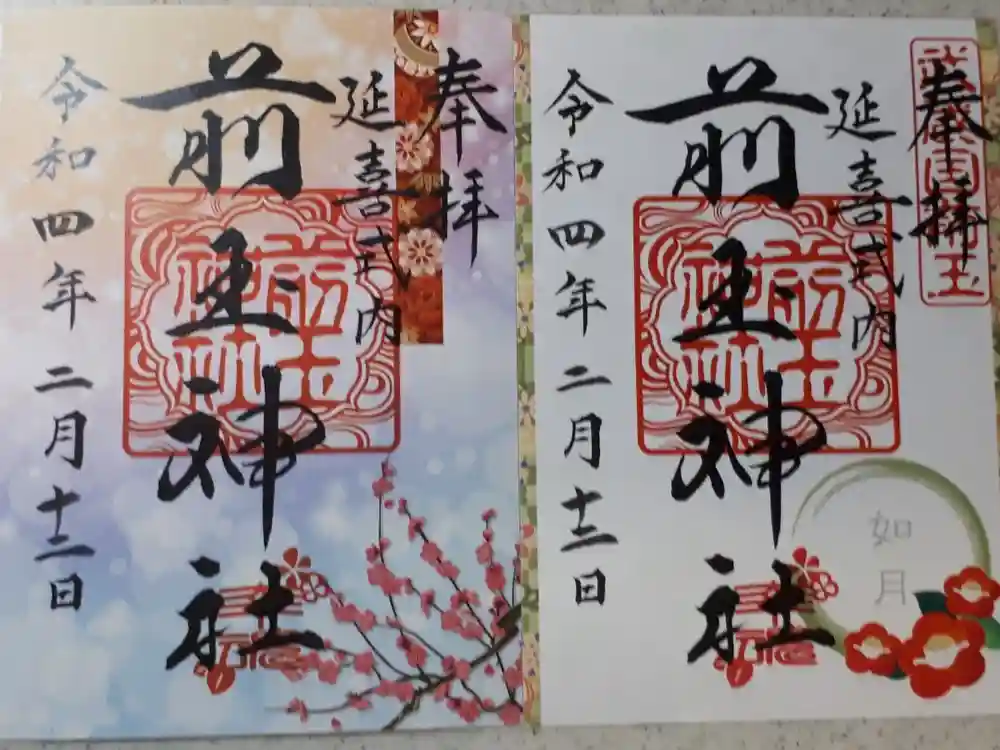 奉拝
延喜式内
前玉神社
令和四年二月十三日
奉拝
延喜式内
前玉神社
令和四年二月十三日
前玉神社
前玉神社
如月